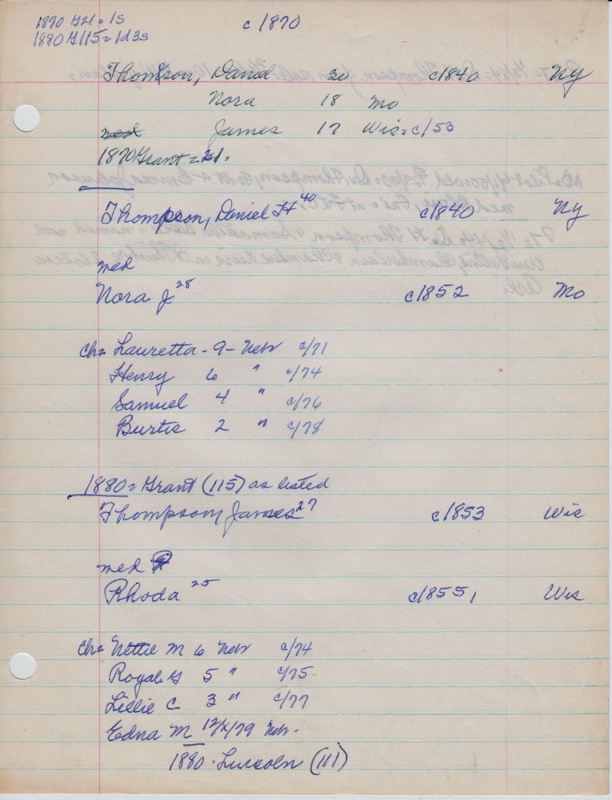 1870 G21 = 1s
c1870
1880 G115 = 1d 3s
Thompson, Daniel 30 c1840 Ny
Nora 18 Mo
med James 17 Wis = c/53
1870 Grant = 21.
Thompson, Daniel H 40 c1840 Ny
med
Nora J 28 c1852 Mo
Ch = Lauretta - 9 - Nebr c/71
Henry 6 " c/74
Samuel 4 " c/76
Burtis 2 " c/78
1880 = Grant (115) as listed
Thompson James 27 c1853 Wis
med
Rhoda 25 c1855 Wis
Ch = Nettie M 6 Nebr c/74
Royal G 5 " c/75
Lillie C 3 " c/77
Edna M 12/79 Nebr.
1880 - Lincoln (111)